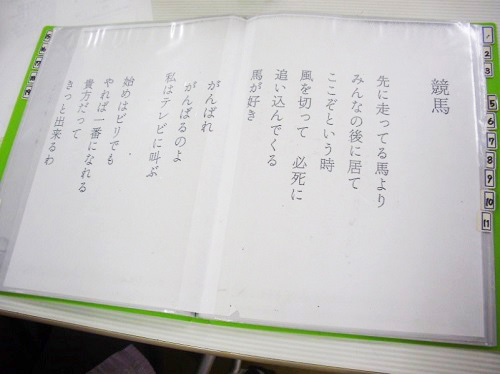 競馬
先に走ってる馬より
みんなの後に居て
ここぞという時
風を切って 必死に
追い込んでくる
馬が好き
がんばれ
がんばるのよ
私はテレビに叫ぶ
始めはビリでも
やれば一番になれる
貴方だって
きっと出来るわ
1
2
3
5
6
7
8
9
10
11